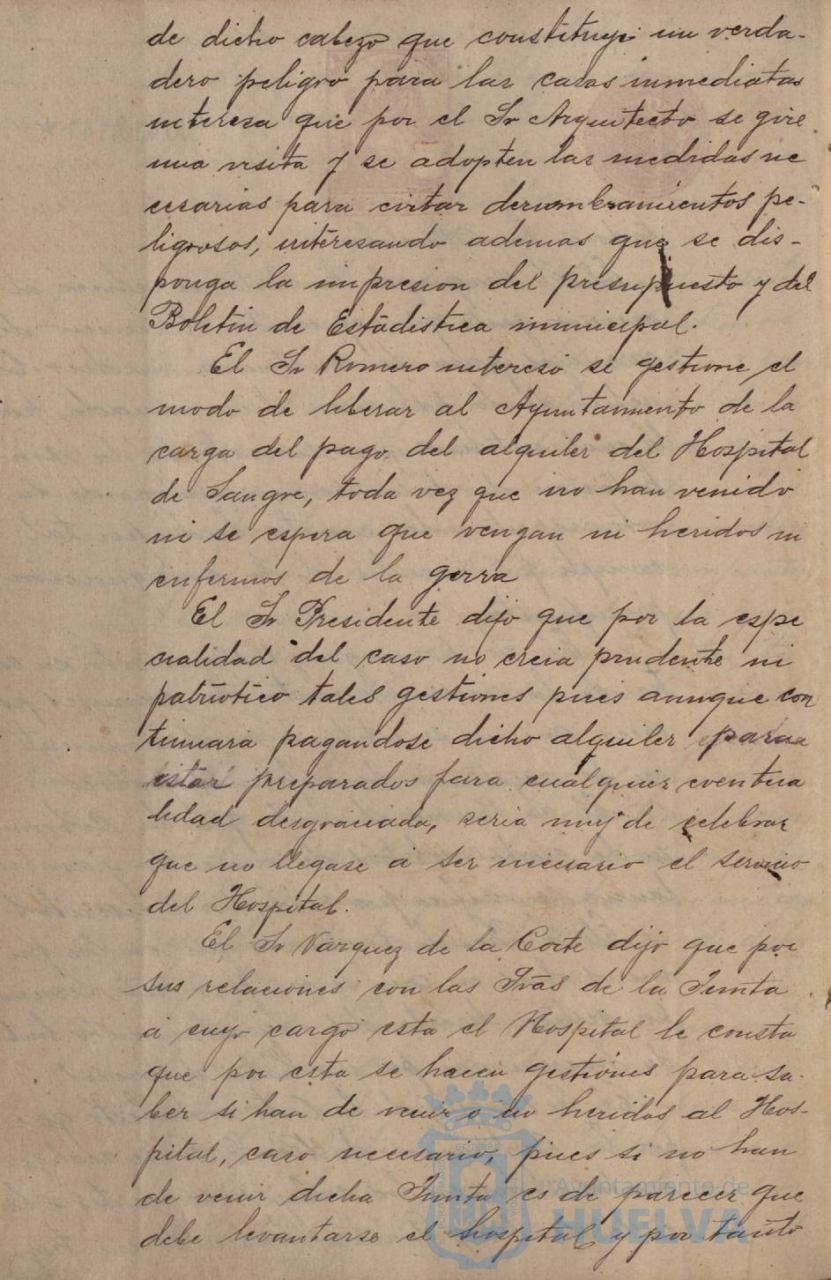 de dicho cabezo que constituye un verda-
dero peligro para las casas inmediatas
interesa que por el Sr Arquitecto se gire
una visita y se adopten las medidas ne
cesarias para evitar derumbramientos pe-
ligrosos, interesando ademas que se dis-
ponga la impresion del presupuesto y del
Boletin de Estadistica municipal.
El Sr Romero intereso se gestione el
modo de liberar al Ayuntamiento de la
carga del pago del alquiler del Hospital
de Sangre, toda vez que no han venido
ni se espera que vengan ni heridos ni
enfermos de la gerra
El Sr Presidente dijo que por la espe
cialidad del caso no creia prudente ni
patriotico tales gestiones pues aunque con
tinuara pagandose dicho alquiler para
estar preparados para cualquier eventua
lidad desgraciada, seria muy de celebrar
que no llegase á ser necesario el servicio
del Hospital.
El Sr Vazquez de la Corte dijo que por
sus relaciones con las Sras de la Junta
á cuyo cargo esta el Hospital le consta
que por esta se hacen gestiones para sa-
ber si han de venir o no heridos al Hos-
pital, caso necesario, pues si no han
de venir dicha Junta es de parecer que
debe levantarse el hospital y por tanto
Ayuntamiento de
HUELVA